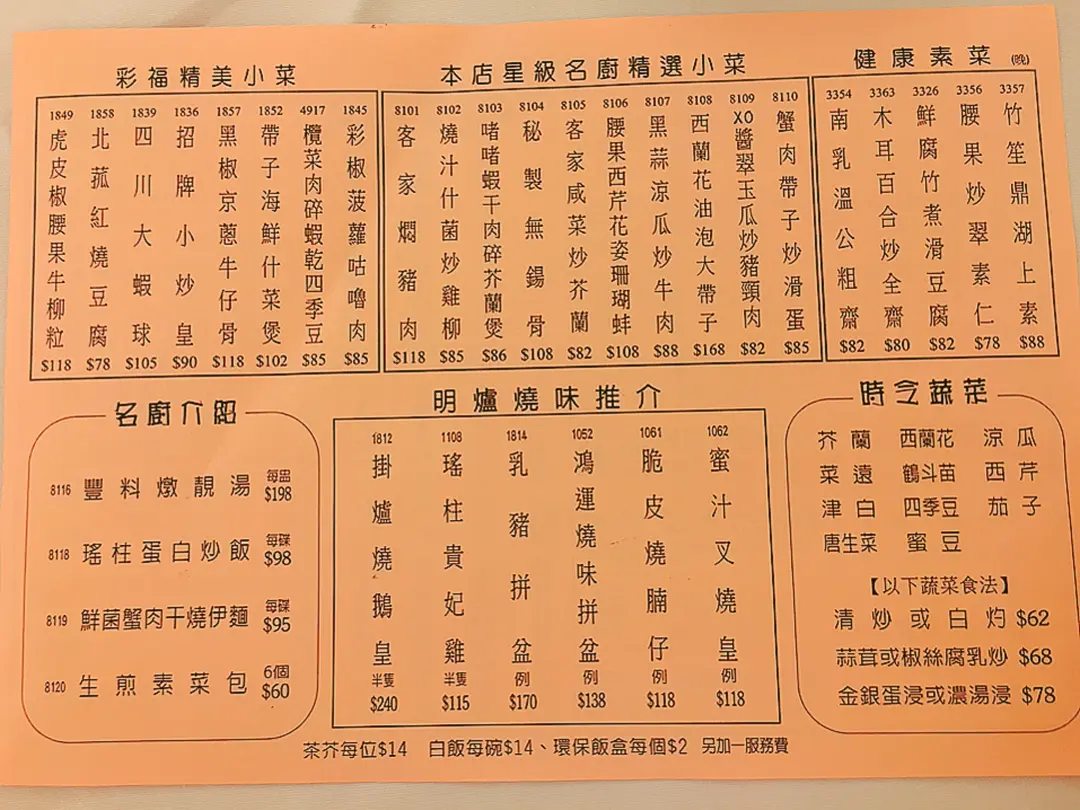 彩福精美小菜
1849 虎皮椒腰果牛柳粒 $118
1858 北菰紅燒豆腐 $78
1839 四川大蝦球 $105
1836 招牌小炒皇 $90
1857 黑椒京蔥牛仔骨 $118
1852 帶子海鮮什菜煲 $102
4917 欖菜肉碎蝦乾四季豆 $85
1845 彩椒菠蘿咕嚕肉 $85
本店星級名廚精選小菜
8101 客家燜豬肉 $118
8102 燒汁什菌炒雞柳 $85
8103 啫啫蝦干肉碎芥蘭煲 $86
8104 秘製無錫骨 $108
8105 客家咸菜炒芥蘭 $82
8106 腰果西芹花姿珊瑚蚌 $108
8107 黑蒜涼瓜炒牛肉 $88
8108 西蘭花油泡大帶子 $168
8109 XO醬翠玉瓜炒豬頸肉 $82
8110 蟹肉帶子炒滑蛋 $85
健康素菜 (晚)
3354 南乳溫公粗齋 $82
3363 木耳百合炒全齋 $80
3326 鮮腐竹煮滑豆腐 $82
3356 腰果炒翠素仁 $78
3357 竹笙鼎湖上素 $88
名廚介紹
8116 豐料燉靚湯 每盅 $198
8118 瑤柱蛋白炒飯 每碟 $98
8119 鮮菌蟹肉干燒伊麵 每碟 $95
8120 生煎素菜包 6個 $60
明爐燒味推介
1812 掛爐燒鵝皇 半隻 $240
1108 瑤柱貴妃雞 半隻 $115
1814 乳豬拼盆 例 $170
1052 鴻運燒味拼盆 例 $138
1061 脆皮燒腩仔 例 $118
1062 蜜汁叉燒皇 例 $118
時令蔬菜
芥蘭 西蘭花 涼瓜
菜遠 鶴斗苗 西芹
津白 四季豆 茄子
唐生菜 蜜豆
【以下蔬菜食法】
清炒或白灼 $62
蒜茸或椒絲腐乳炒 $68
金銀蛋浸或濃湯浸 $78
茶芥每位$14 白飯每碗$14、環保飯盒每個$2 另加一服務費